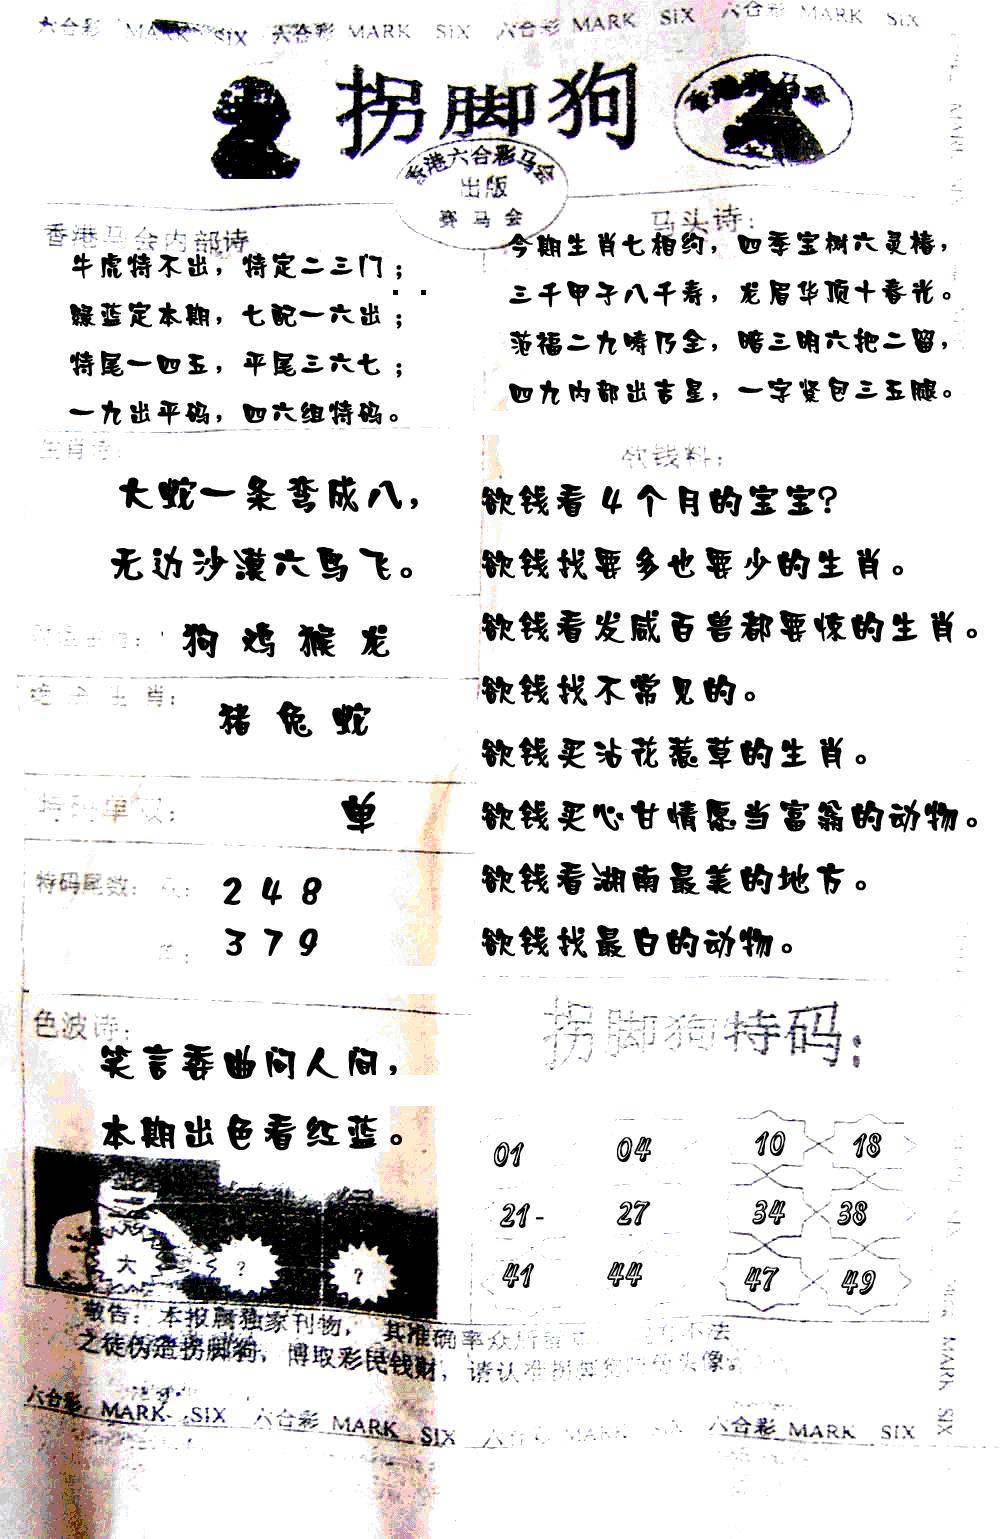 六合彩 MARK SIX 六合彩 MARK SIX 六合彩 MARK SIX 六合彩 MARK SIX
拐脚狗
香港六合彩马会
出版
赛马会
香港马会内部诗
牛虎特不出，特定二三门；
绿蓝定本期，七配一六出；
特尾一四五，平尾三六七；
一九出平码，四六组特码。
马头诗：
今期生肖七相约，四季宝树六灵椿，
三千甲子八千寿，龙眉华顶十春光。
范福二九啼乃全，暗三明六把二留，
四九内部出吉星，一字竖包三五腿。
生肖诗：
大蛇一条弯成八，
无边沙漠六鸟飞。
狗 鸡 猴 龙
生肖：
猪 兔 蛇
特码单双：
单
特码尾数：
2 4 8
3 7 9
欲钱料：
欲钱看4个月的宝宝?
欲钱找要多也要少的生肖。
欲钱看发威百兽都要惊的生肖。
欲钱找不常见的。
欲钱买沾花惹草的生肖。
欲钱买心甘情愿当富翁的动物。
欲钱看湖南最美的地方。
欲钱找最白的动物。
色波诗：
笑言委曲问人间，
本期出色看红蓝。
大 ? ?
拐脚狗特码：
01 04 10 18
21- 27 34 38
41 44 47 49
敬告：本报属独家刊物，其准确率众所
不法
之徒伪造拐脚狗，博取彩民钱财，请认准拐脚狗头像。
六合彩 MARK SIX 六合彩 MARK SIX 六合彩 MARK SIX 六合彩 MARK SIX
MARK SIX